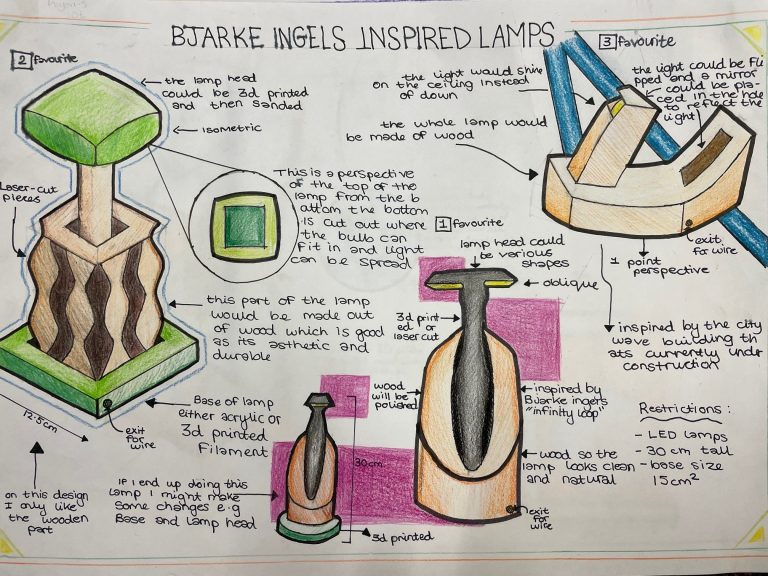 BJARKE INGELS INSPIRED LAMPS
2 favourite
the lamp head
could be 3d printed
and then sanded
isometric
Laser-cut
pieces
This is a perspective
of the top of the
lamp from the b
ottom the bottom
is cut out where
the bulb can
fit in and light
can be spread
this part of the lamp
would be made out
of wood which is good
as its asthetic and
durable
Base of lamp
either acrylic or
3d printed
Filament
12.5cm
exit
for
wire
on this design
I only like
the wooden
part
3 favourite
the light would shine
on the ceiling instead
of down
the light could be Fli
pped and a mirror
could be pla-
ced in the hole
to reflect the
light
the whole lamp would
be made of wood
exit
for wire
1 point
perspective
inspired by the city
wave building th
ats currently undr
construction
1 favourite
lamp head could
be various
shapes
oblique
3d print
ed or
laser cut
wood
will be
polished
inspired by
Bjarke ingers
"infinity loop"
wood so the
lamp looks clean
and natural
exit
for
wire
If I end up doing this
lamp I might make
some changes e.g
Base and lamp head
30cm
3d printed
Restrictions:
- LED lamps
- 30 cm tall
- base size
15cm²